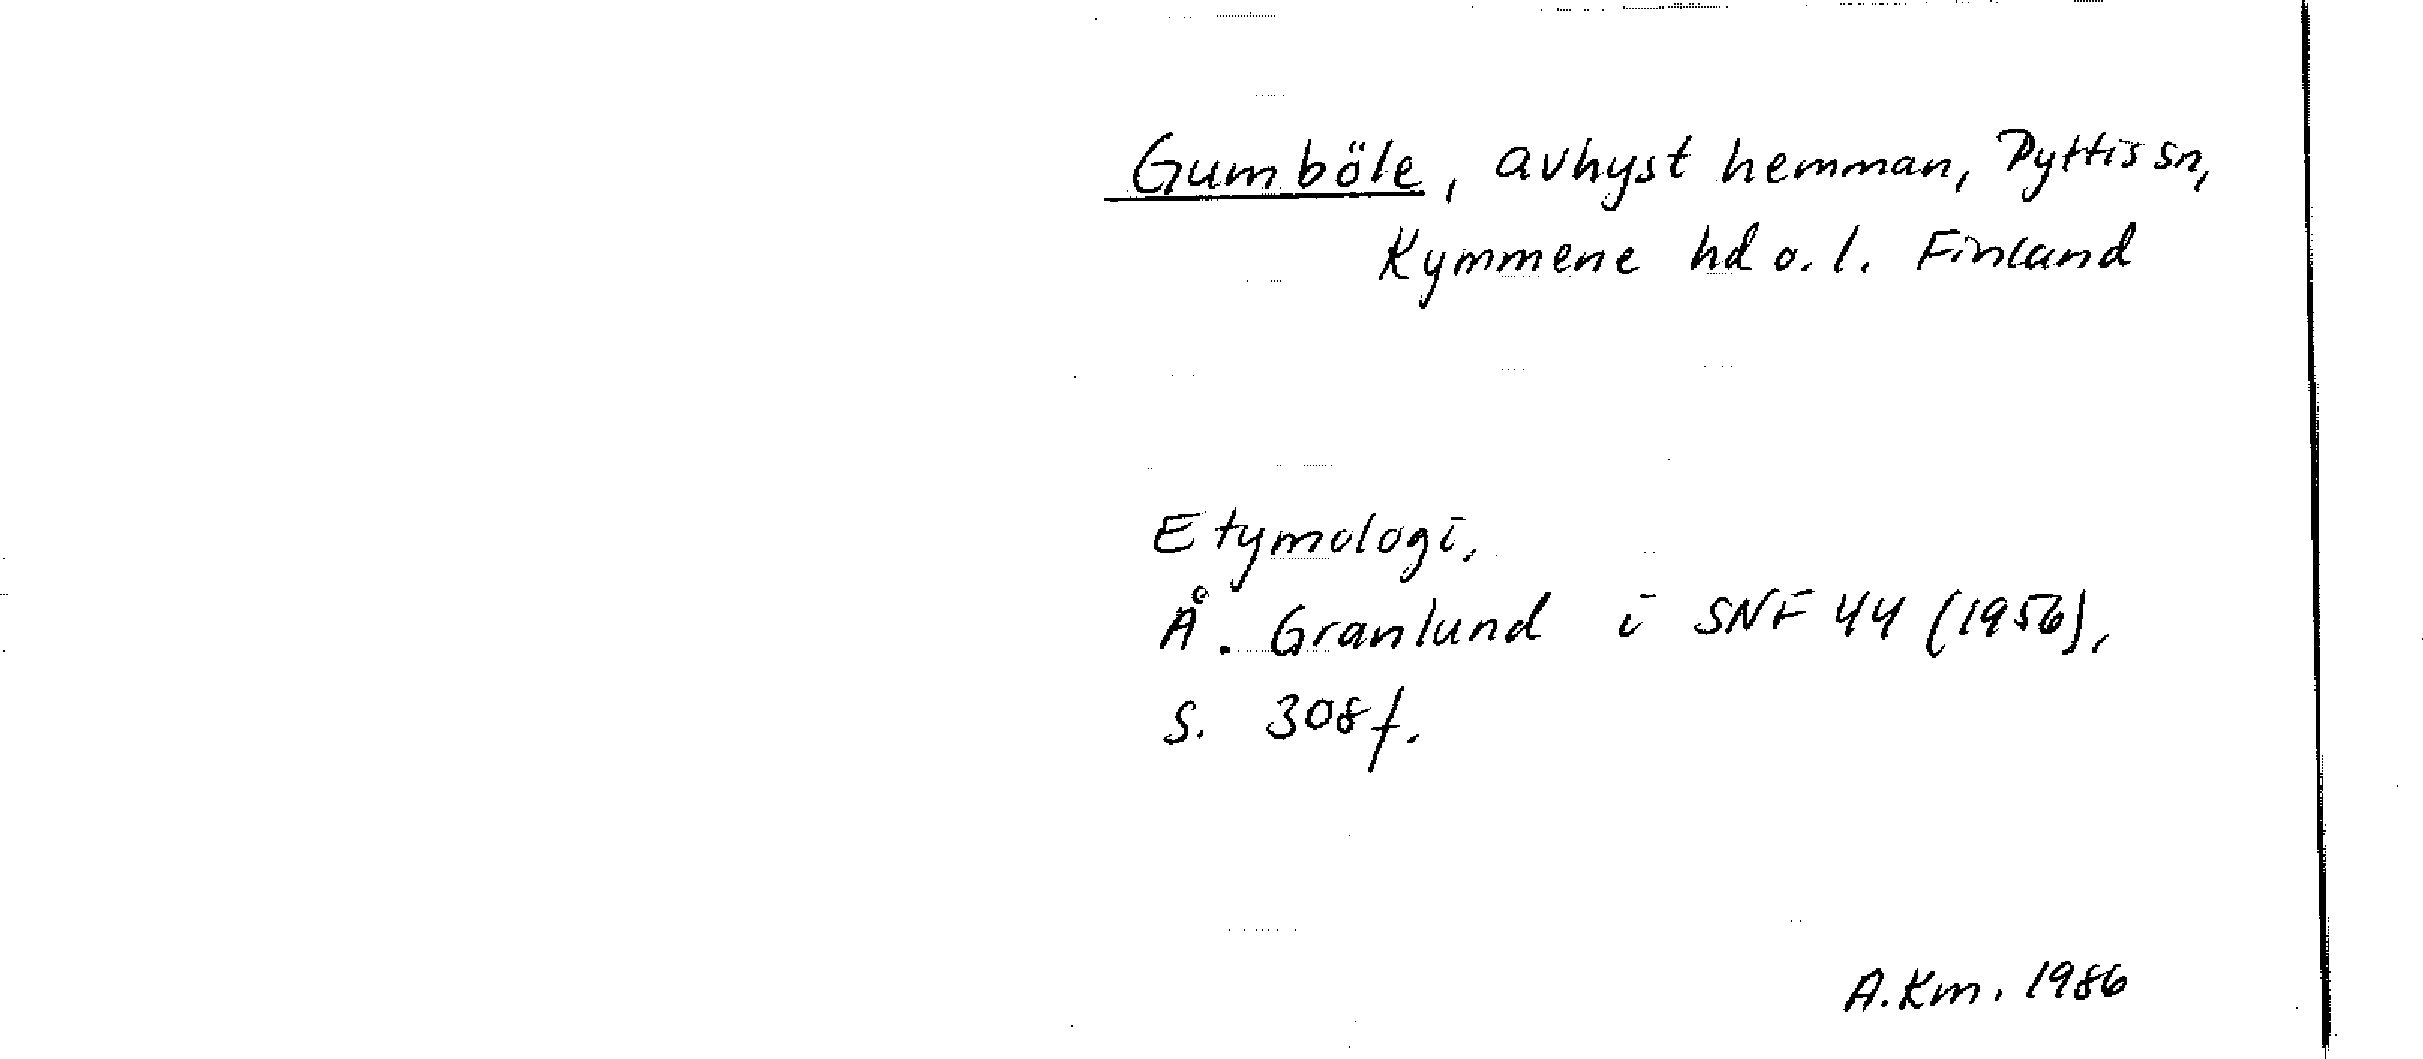 Gumböle, avhyst hemman, Pyttis sn,
Kymmene hd o. l. Finland
Etymologi,
Å. Granlund i SNF 44 (1956),
s. 308 f.
A. Km. 1986